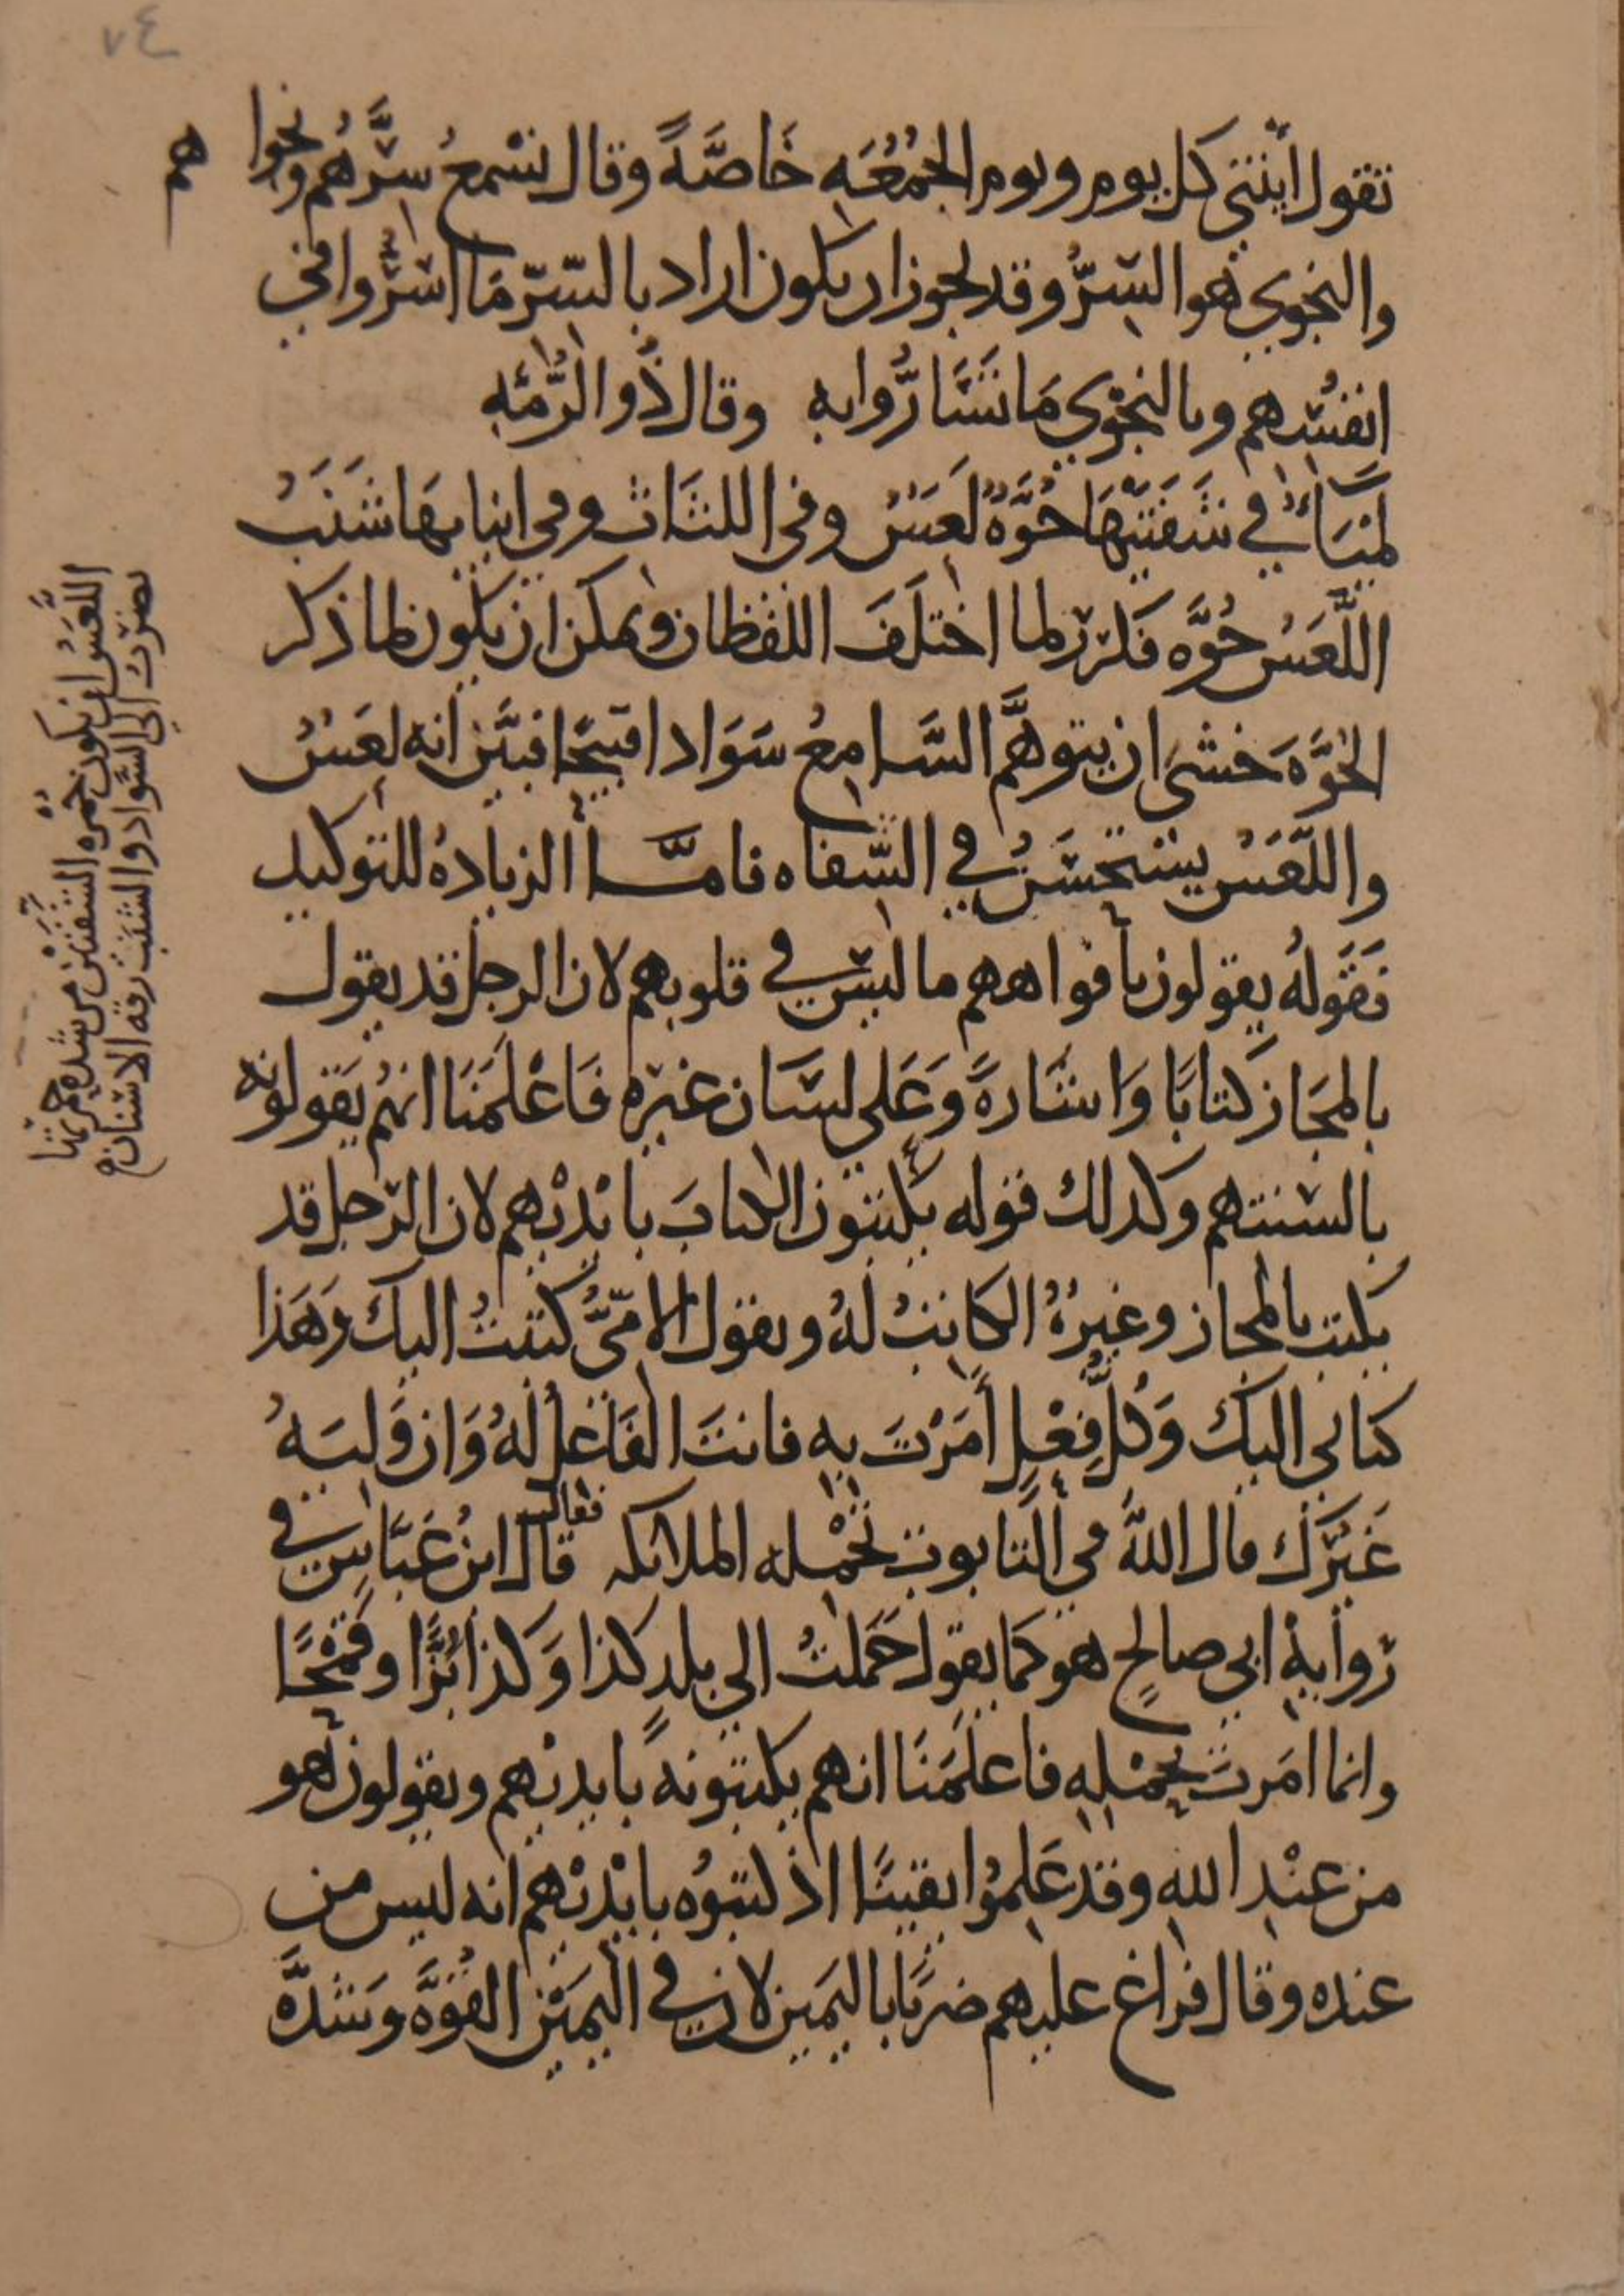 ٧٤
تقول ايتني كل يوم ويوم الجُمُعَه خَاصَّةً وقال نسْمعُ سِرَّهُم ونجوا
هم
والنجوي هو السِرُّ وقد يجوز ان يكون اراد بالسّرّ مَا اسَرُّوا في
انفُسِهم وبالنجْوي مَا تَسَارُّوا به وقال ذُو الرُّمَّهِ
لمْيَاءُ في شَفَتَيْهَا حُوَّةٌ لَعَسٌ وفي اللثَاث وفي انيابهَا شَنَبُ
اللَّعَسُ حُوَّه فكرر لما اختلَفَ اللفظان ويمكن ان يكون لما ذكر
الحُوَّهَ خشى ان يتوهَّم السَّامِعُ سَوَادا قبيحًا فبيَّن انه لعَسٌ
واللَّعَسُ يستحْسَنُ في الشّفاه فامَّا الزيادهُ للتوكيد
فَقَولهُ يقولون بافواههم ما ليس في قلوبهم لان الرجل قد يقول
بالمجَاز كتابًا وَاشَارةً وَعَلى لسَان غيرِه فَاعْلَمَنَا انهُم يَقولونه
بالسنتهم وكذلك قوله يكتبون الكتابَ بايْديْهم لان الرّجل قد
يكتب بالمجاز وغيرُهُ الكاتبُ لهُ ويقول الامّيُّ كتبْتُ اليك وَهَذا
كتابي اليك وَكُلُّ فِعْلٍ أمَرْتَ بِهِ فانتَ الفَاعلُ لهُ وَان وَليَهُ
غَيْرَك قال اللهُ في التابوت تحْمله الملائكه فقال قال ابنُ عَبَّاسٍ في
رِوايةِ ابي صالحٍ هو كما يقول حَمَلتُ الي بلدِ كذا وَكذا بُرًّا وقمْحًا
وانما امَرتَ بحمْلِهِ فاعلَمَنَا انهم يكتبونه بايديهم ويقولون هو
من عنْدِ اللهِ وقد عَلِمُوا يقينًا اذ كتبُوه بايْديْهم انه ليس من
عنده وقال فراغ عليهم ضربًا باليَمين لان في اليَميْن القُوَّهَ وَشدَّه
اللَّعَسُ ان يكون حُمْره الشفتَيْن من شدّه حمرتها
تضرب الي السّواد والشنَبُ رقه الاسنان